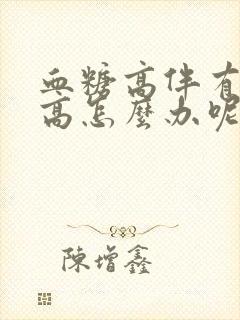 血糖高伴有
高怎麼办呢
陳增鑫